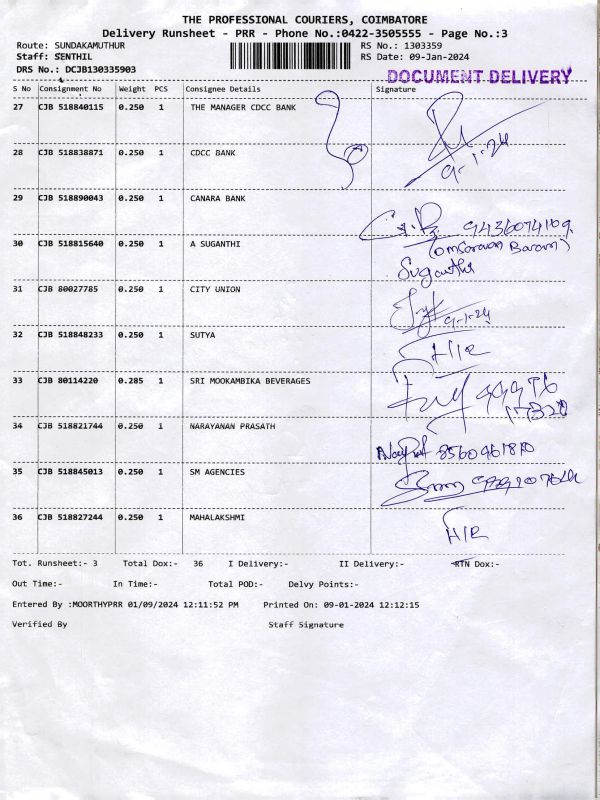 THE PROFESSIONAL COURIERS, COIMBATORE
Delivery Runsheet - PRR - Phone No.:0422-3505555 - Page No.:3
Route: SUNDAKAMUTHUR RS No.: 1303359
Staff: SENTHIL RS Date: 09-Jan-2024
DRS No.: DCJB130335903 DOCUMENT DELIVERY
S No Consignment No Weight PCS Consignee Details Signature
27 CJB 518840115 0.250 1 THE MANAGER CDCC BANK
9-1-24
28 CJB 518838871 0.250 1 CDCC BANK
29 CJB 518890043 0.250 1 CANARA BANK
30 CJB 518815640 0.250 1 A SUGANTHI
Suganthi
31 CJB 80027785 0.250 1 CITY UNION
9-1-24
32 CJB 518848233 0.250 1 SUTYA
H/R
33 CJB 80114220 0.285 1 SRI MOOKAMBIKA BEVERAGES
34 CJB 518821744 0.250 1 NARAYANAN PRASATH
35 CJB 518845013 0.250 1 SM AGENCIES
36 CJB 518827244 0.250 1 MAHALAKSHMI
H/R
Tot. Runsheet:- 3 Total Dox:- 36 I Delivery:- II Delivery:- RTN Dox:-
Out Time:- In Time:- Total POD:- Delvy Points:-
Entered By :MOORTHYPRR 01/09/2024 12:11:52 PM Printed On: 09-01-2024 12:12:15
Verified By Staff Signature